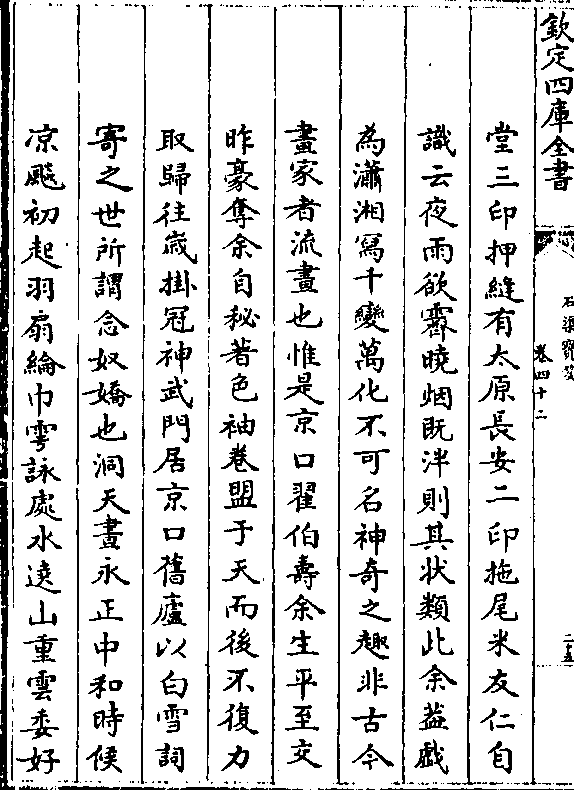 欽定四庫全書
石渠寶笈
卷四十二
二五
堂三印押縫有太原長安二印拖尾米友仁自
識云夜雨欲霽曉烟既泮則其状類此余葢戲
為瀟湘寫千變萬化不可名神奇之趣非古今
畫家者流畫也惟是京口翟伯壽余生平至交
昨豪奪余自秘著色袖卷盟于天而後不復力
取歸往歲掛冠神武門居京口舊廬以白雪詞
寄之世所謂念奴嬌也洞天晝永正中和時候
凉颷初起羽扇綸巾雩詠處水遶山重雲委好